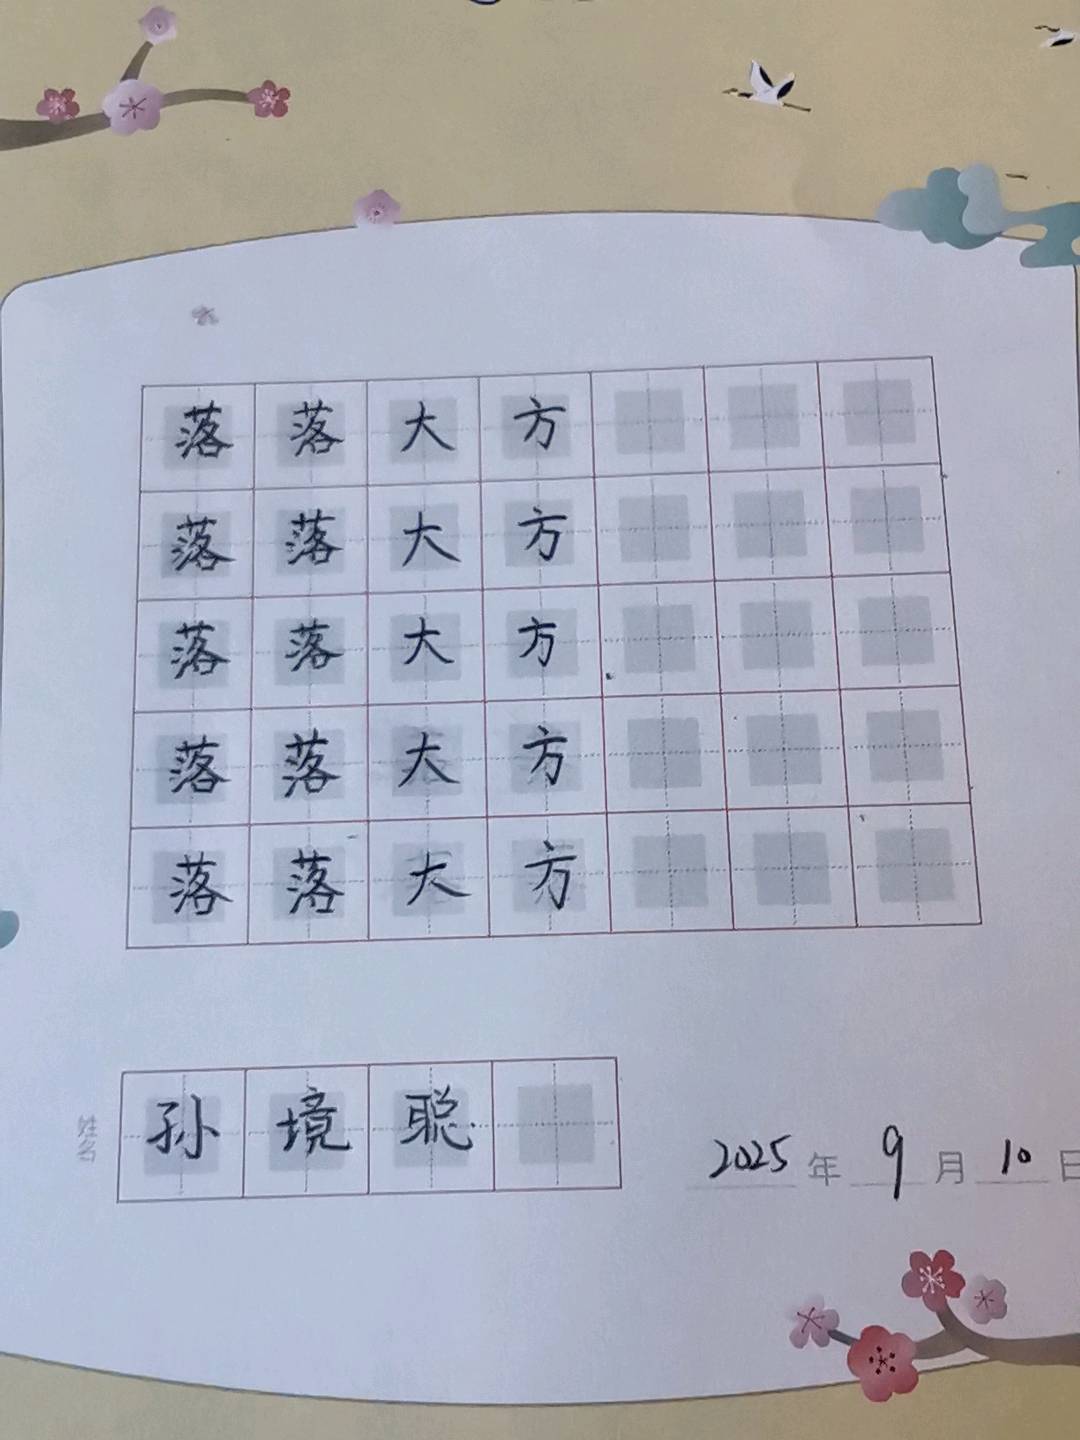 落落大方
落落大方
落落大方
落落大方
落落大方
姓名 孙境聪
2025年9月10日